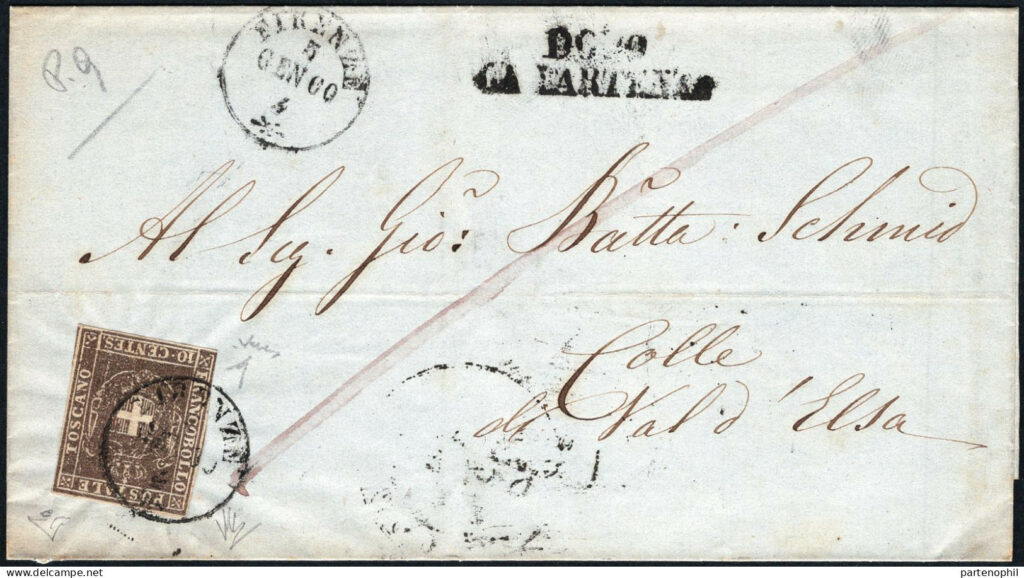 P. 9
FIRENZE
5
GEN 60
4
DOPO
LA PARTENZA
Al Sig. Gio: Batta: Schmid
Colle
di Val d'Elsa
10·CENTES.
FRANCOBOLLO
POSTALE
TOSCANO
FIRENZE
1
partenophil